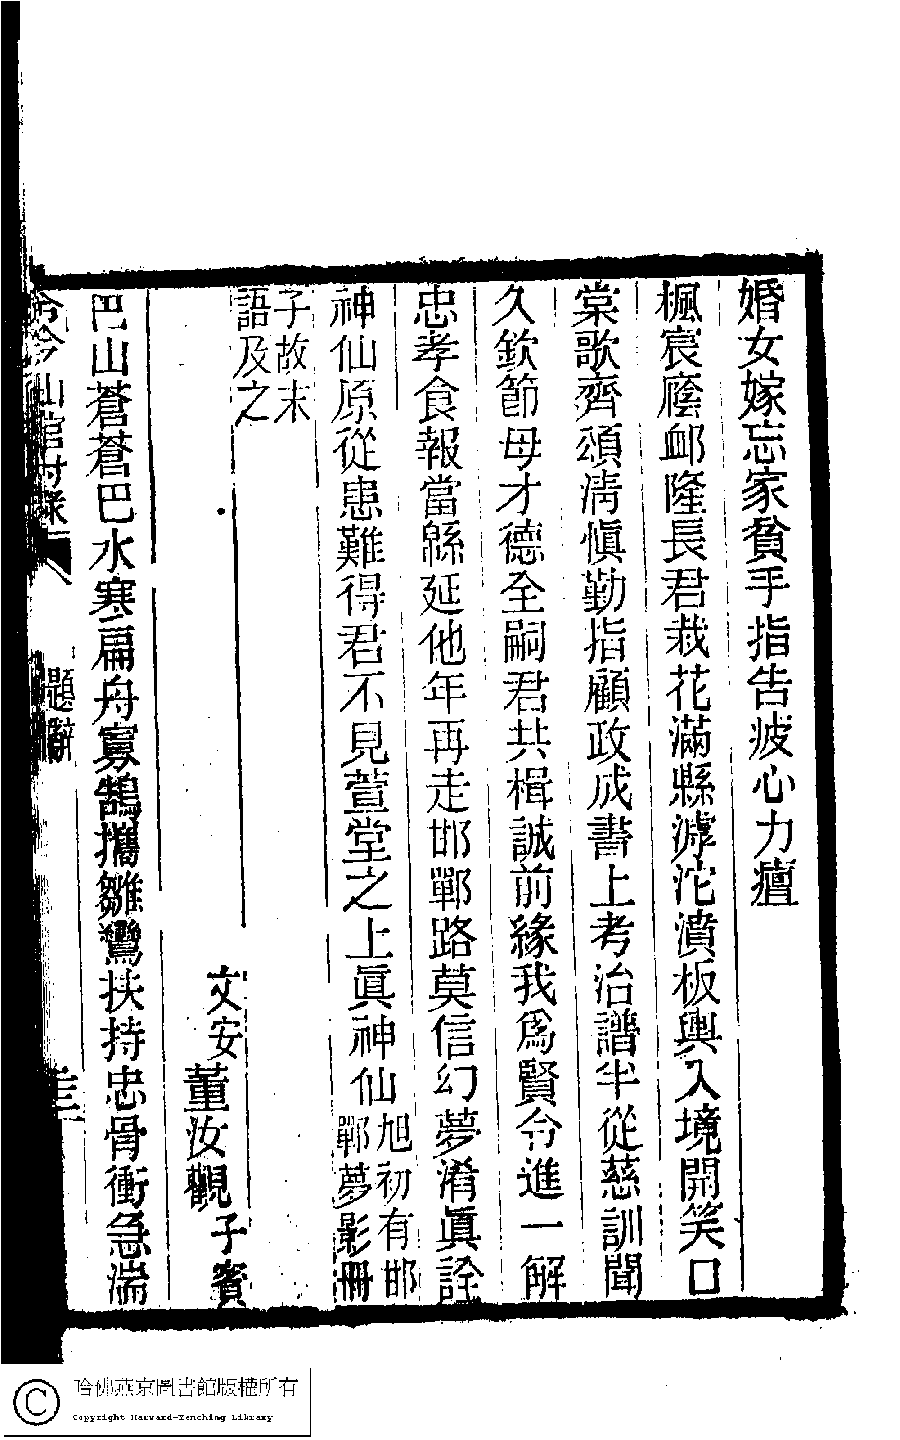 婚女嫁忘家貧手指告疲心力癉
楓宸蔭邺隆長君栽花滿縣滹沱濆板輿入境開笑口
棠歌齊頌淸愼勤指顧政成書上考治譜半從慈訓聞
久欽節母才德全嗣君共楫誠前緣我爲賢令進一解
忠孝食報當緜延他年再走邯鄲路莫信幻夢淆眞詮
神仙原從患難得君不見萱堂之上眞神仙旭初有邯
鄲夢影冊
子故末
語及之
文安董汝觀子賓
巴山蒼蒼巴水寒扁舟寡鵠攜雛鸞扶持忠骨衝急湍
山館附錄
題辭
哈佛燕京圖書館版權所有
Copyright Harvard-Yenching Library